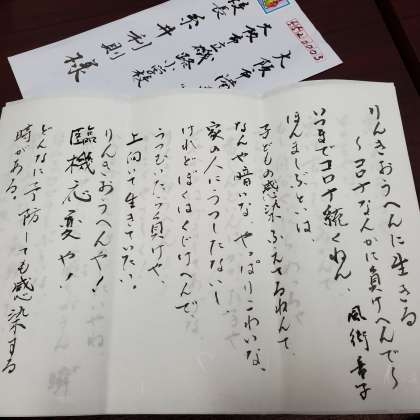 552-0003
大阪市港
大阪市立磯路小学校
校長
糸井利則
様
りんきおうへんに生きる
〜コロナなんかに負けへんで〜
風街香子
いつまでコロナ続くねん
ほんましぶといは、
子どもの感染ふえてるねんて、
なんや暗いな、やっぱりこわいな、
家の人にうつしたないし、
けれどぼくはくじけへんで、
うつむいたら負けや、
上向いて生きていたい。
りんきおうへんや!
臨機応変や!
どんなに予防しても感染する
時がある。